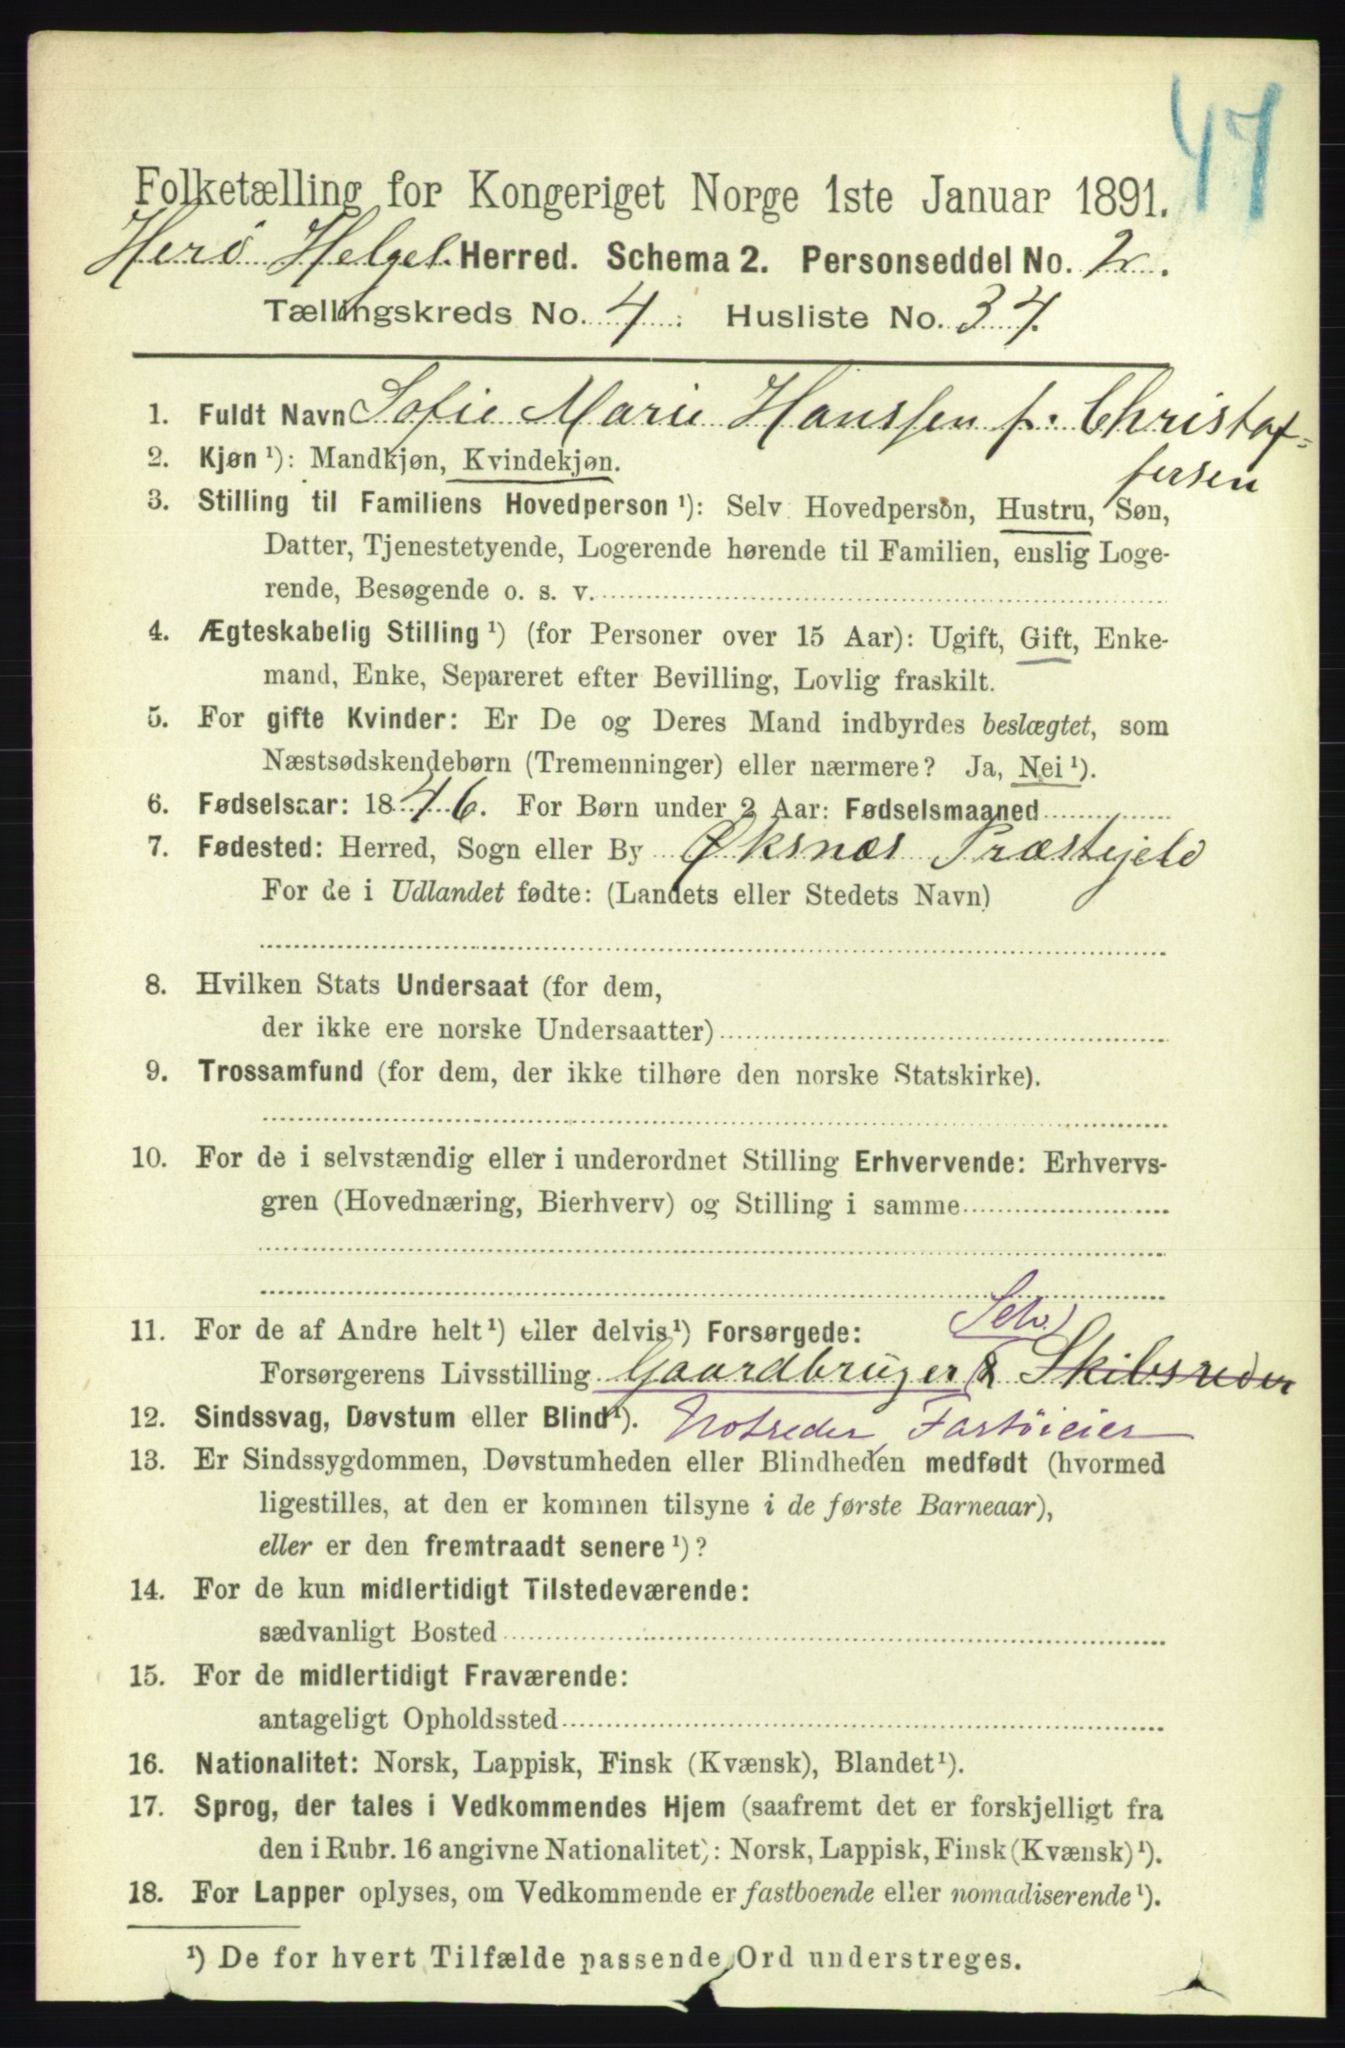 47
Folketælling for Kongeriget Norge 1ste Januar 1891.
Herö Helgel. Herred. Schema 2. Personseddel No. 2.
Tællingskreds No. 4. Husliste No. 34.
1. Fuldt Navn Sofie Marie Hanssen f. Christof=
fersen
2. Kjøn ¹): Mandkjøn, Kvindekjøn.
3. Stilling til Familiens Hovedperson ¹): Selv Hovedperson, Hustru, Søn,
Datter, Tjenestetyende, Logerende hørende til Familien, enslig Loge-
rende, Besøgende o. s. v.
4. Ægteskabelig Stilling ¹) (for Personer over 15 Aar): Ugift, Gift, Enke-
mand, Enke, Separeret efter Bevilling, Lovlig fraskilt.
5. For gifte Kvinder: Er De og Deres Mand indbyrdes beslægtet, som
Næstsødskendebørn (Tremenninger) eller nærmere? Ja, Nei ¹).
6. Fødselsaar: 1846. For Børn under 2 Aar: Fødselsmaaned
7. Fødested: Herred, Sogn eller By Øksnæs Præstegjeld
For de i Udlandet fødte: (Landets eller Stedets Navn)
8. Hvilken Stats Undersaat (for dem,
der ikke ere norske Undersaatter)
9. Trossamfund (for dem, der ikke tilhøre den norske Statskirke).
10. For de i selvstændig eller i underordnet Stilling Erhvervende: Erhvervs-
gren (Hovednæring, Bierhverv) og Stilling i samme
Selv.
11. For de af Andre helt ¹) eller delvis ¹) Forsørgede:
Forsørgerens Livsstilling Gaardbruger & Skibsreder
12. Sindssvag, Døvstum eller Blind ¹). Notreder, Fartöieier
13. Er Sindssygdommen, Døvstumheden eller Blindheden medfødt (hvormed
ligestilles, at den er kommen tilsyne i de første Barneaar),
eller er den fremtraadt senere ¹)?
14. For de kun midlertidigt Tilstedeværende:
sædvanligt Bosted
15. For de midlertidigt Fraværende:
antageligt Opholdssted
16. Nationalitet: Norsk, Lappisk, Finsk (Kvænsk), Blandet ¹).
17. Sprog, der tales i Vedkommendes Hjem (saafremt det er forskjelligt fra
den i Rubr. 16 angivne Nationalitet): Norsk, Lappisk, Finsk (Kvænsk) ¹).
18. For Lapper oplyses, om Vedkommende er fastboende eller nomadiserende ¹).
¹) De for hvert Tilfælde passende Ord understreges.